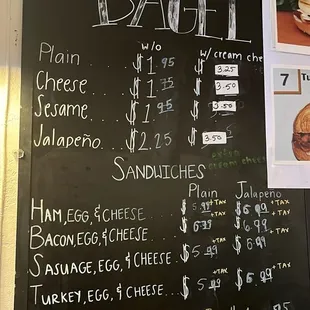 BAGEL
w/o w/ cream che
Plain $1.95 $ 3.25
Cheese $1.75 $ 3.50
Sesame $1.95 $ 3.50
Jalapeño $2.25 $ 3.50
cream cheese
SANDWICHES
Plain Jalapeño
HAM, EGG, & CHEESE $5.99 +TAX $6.99 +TAX
BACON, EGG, & CHEESE +TAX $6.99 +TAX
SASUAGE, EGG, & CHEESE $5.99 +TAX $6.99 +TAX
TURKEY, EGG, & CHEESE $5.99 +TAX $6.99 +TAX
7